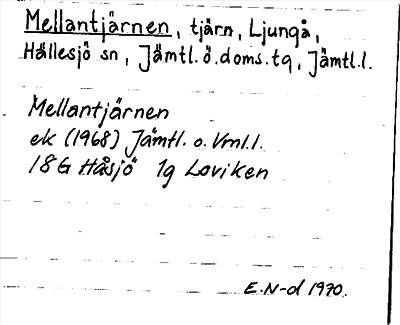 Mellantjärnen, tjärn, Ljungå,
Hällesjö sn, Jämtl. ö. doms. tg, Jämtl. l.
Mellantjärnen
ek (1968) Jämtl. o. Vml. l.
18G Håsjö 1g Loviken
E. N-d 1970.